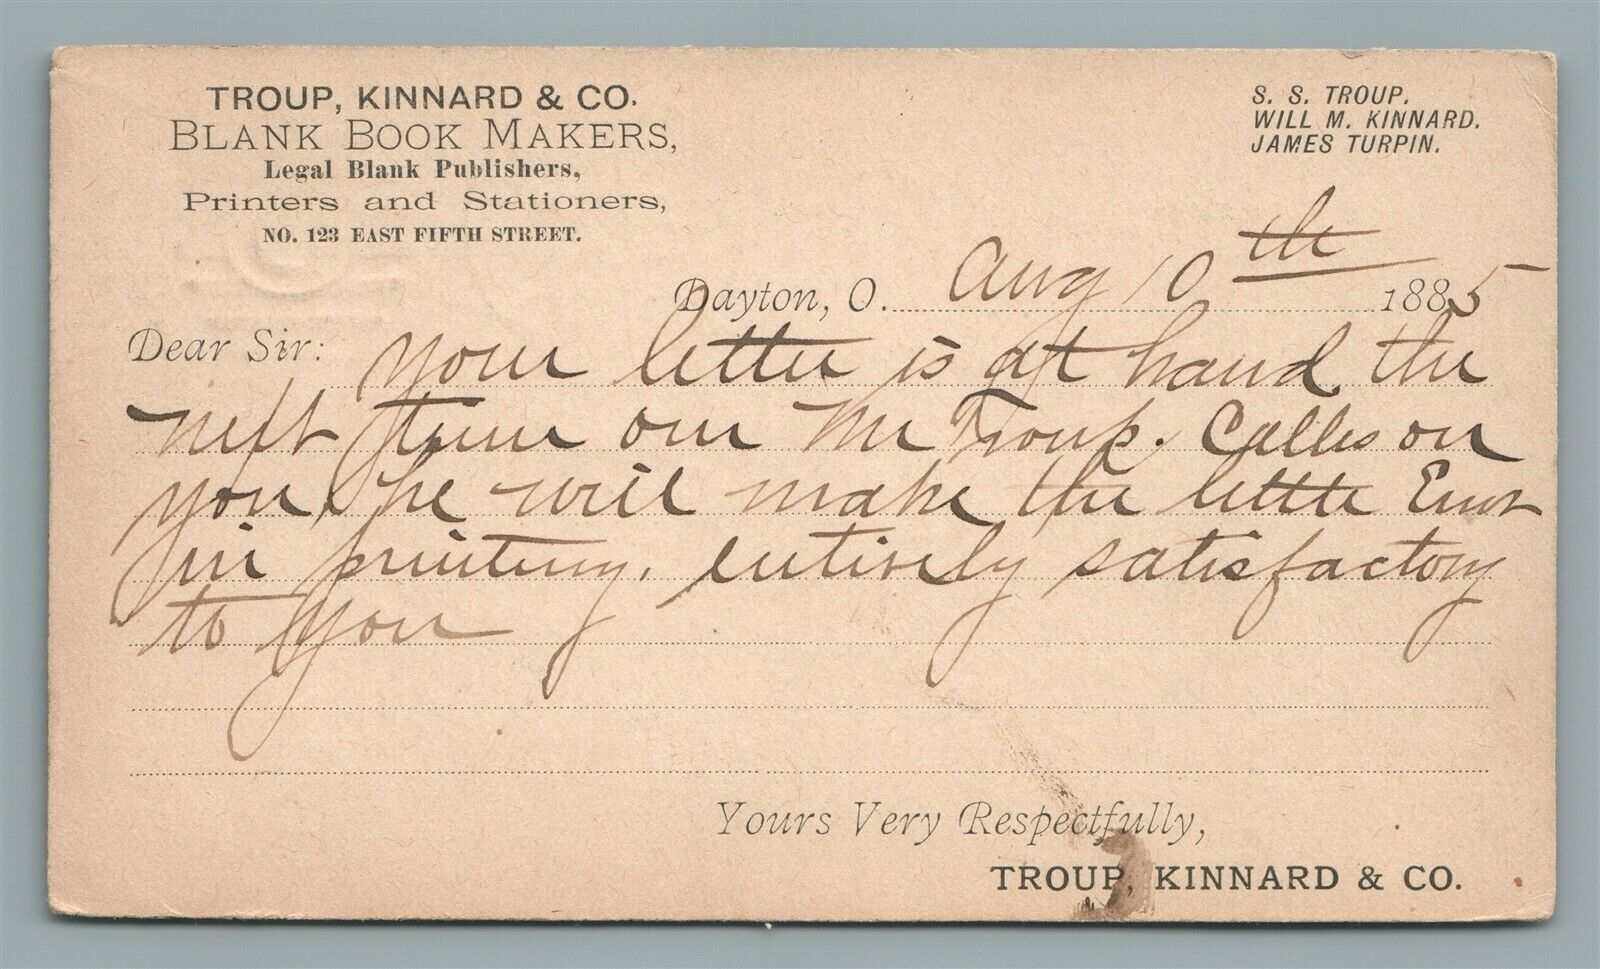 TROUP, KINNARD & CO.
BLANK BOOK MAKERS,
Legal Blank Publishers,
Printers and Stationers,
NO. 123 EAST FIFTH STREET.
S. S. TROUP.
WILL M. KINNARD.
JAMES TURPIN.
Dayton, O. Aug 10th 1885
Dear Sir: Your letter is at hand the
next time our Mr Troup. Calls on
you he will make the little Error
in printing, entirely satisfactory
to you
Yours Very Respectfully,
TROUP, KINNARD & CO.